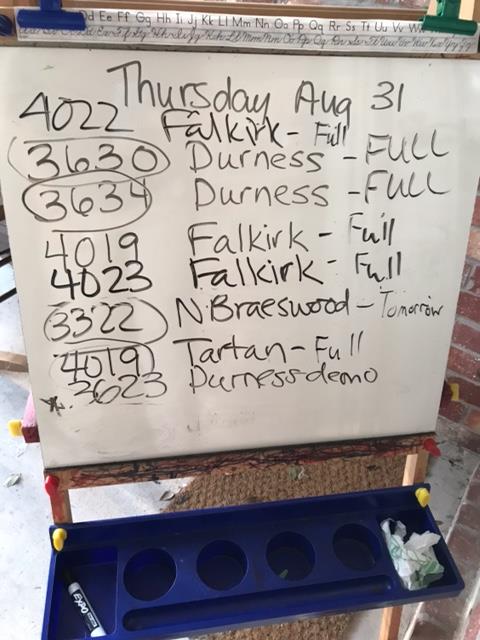 Dd Ee Ff Gg Hh Ii Jj Kk Ll Mm Nn Oo Pp Qq Rr Ss Tt Uu Vv Ww
Thursday Aug 31
4022 Falkirk - Full
3630 Durness - FULL
3634 Durness - FULL
4019 Falkirk - Full
4023 Falkirk - Full
3322 N.Braeswood - Tomorrow
4019 Tartan - Full
*. 3623 Durness demo
EXPO